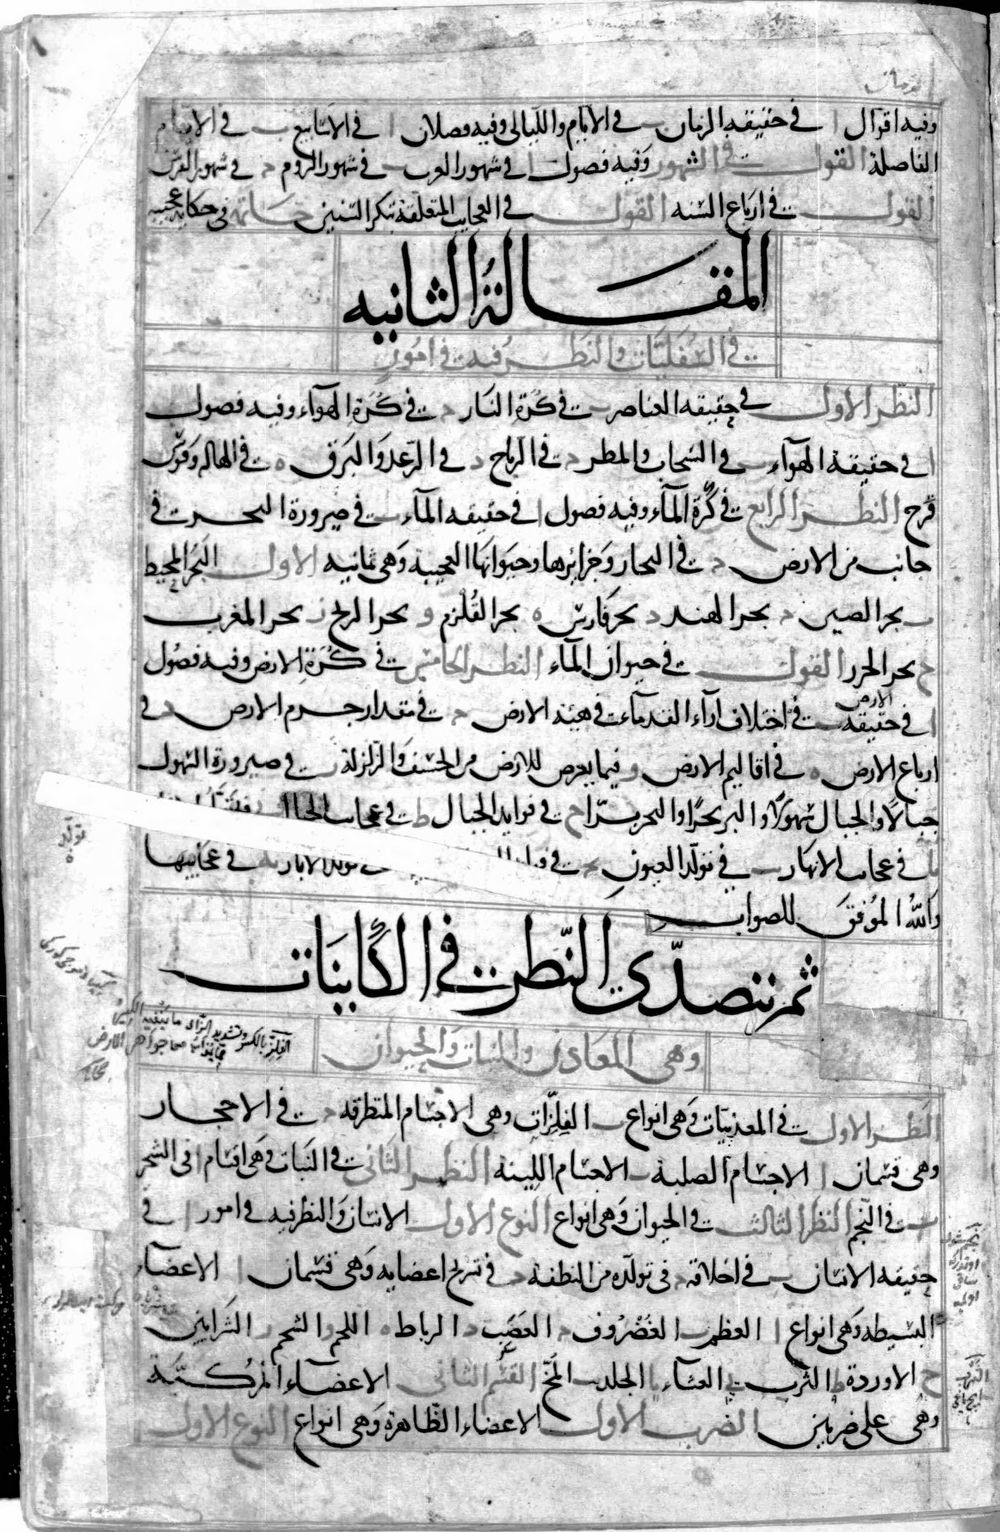 وفيه اقوال ا في حقيقه الزمان ب في الايام والليالى وفيه فصلان ا في الاسابيع ب في الايام
الفاضلة القول ج في الشهور وفيه فصول ا في شهور العرب ب في شهور الروم ج في شهور الفرس
القول د في ارباع السنه القول ه في العجايب المتعلقة بتكرر السنين خاتمة في حكاية عجيبه
المقالة الثانيه
في السفليات والنظر فيه في امور
النظر الاول في حقيقه العناصر ب في كرة النار ج في كرة الهوآء وفيه فصول
ا في حقيقة الهوآء ب في السحاب والمطر ج في الرياح د في الرعد والبرق ه في الهاله وقوس
قزح النظر الرابع في كرة المآء وفيه فصول ا في حقيقه المآء ب في صيرورة البحر في
جانب من الارض ج في البحار وجزايرها وحيواناتها العجيبه وهى ثمانيه الاول البحر المحيط
ب بحر الصين ج بحر الهند د بحر فارس ه بحر القلزم و بحر الزنج ز بحر المغرب
ح بحر الخزر القول د في حيوان المآء النظر الخامس في كرة الارض وفيه فصول
ا في حقيقة الارض ب في اختلاف ارآء القدمآء في هيئة الارض ج في مقدار جرم الارض د في
ارباع الارض ه في اقاليم الارض و فيما يعرض للارض من الخسف والزلزلة ز في صيرورة السهول
جبالا والجبال سهولا والبر بحرا والبحر برا ح في فوايد الجبال ط في عجايب الجبال
في عجايب الانهار في تولد العيون في تولد الابار في عجايبها
والله الموفق للصواب
ثم نتصدى النظر في الكاينات
وهى المعادن والنبات والحيوان
النظر الاول في المعدنيات وهى انواع الفلزات وهى الاجسام المتطرقه في الاحجار
وهى قسمان ا الاجسام الصلبة ب الاجسام اللينة النظر الثانى في النبات وهى اقسام ا في الشجر
ب في النجم النظر الثالث في الحيوان وهى انواع النوع الاول الانسان والنظر فيه في امور ا في
حقيقه الانسان ب في اخلاقه ج في تولده من النطفة د في تشريح اعضايه وهى قسمان ا الاعضآء
البسيطه وهى انواع ا العظم ب الغضروف ج العصب د الرباط ه اللحم و الشحم ز الشرايين
ح الاوردة ط الثرب ى الغشآء يا الجلد المخ القسم الثانى الاعضآء المركبة
وهى على ضربين الضرب الاول الاعضاء الظاهرة وهى انواع النوع الاول